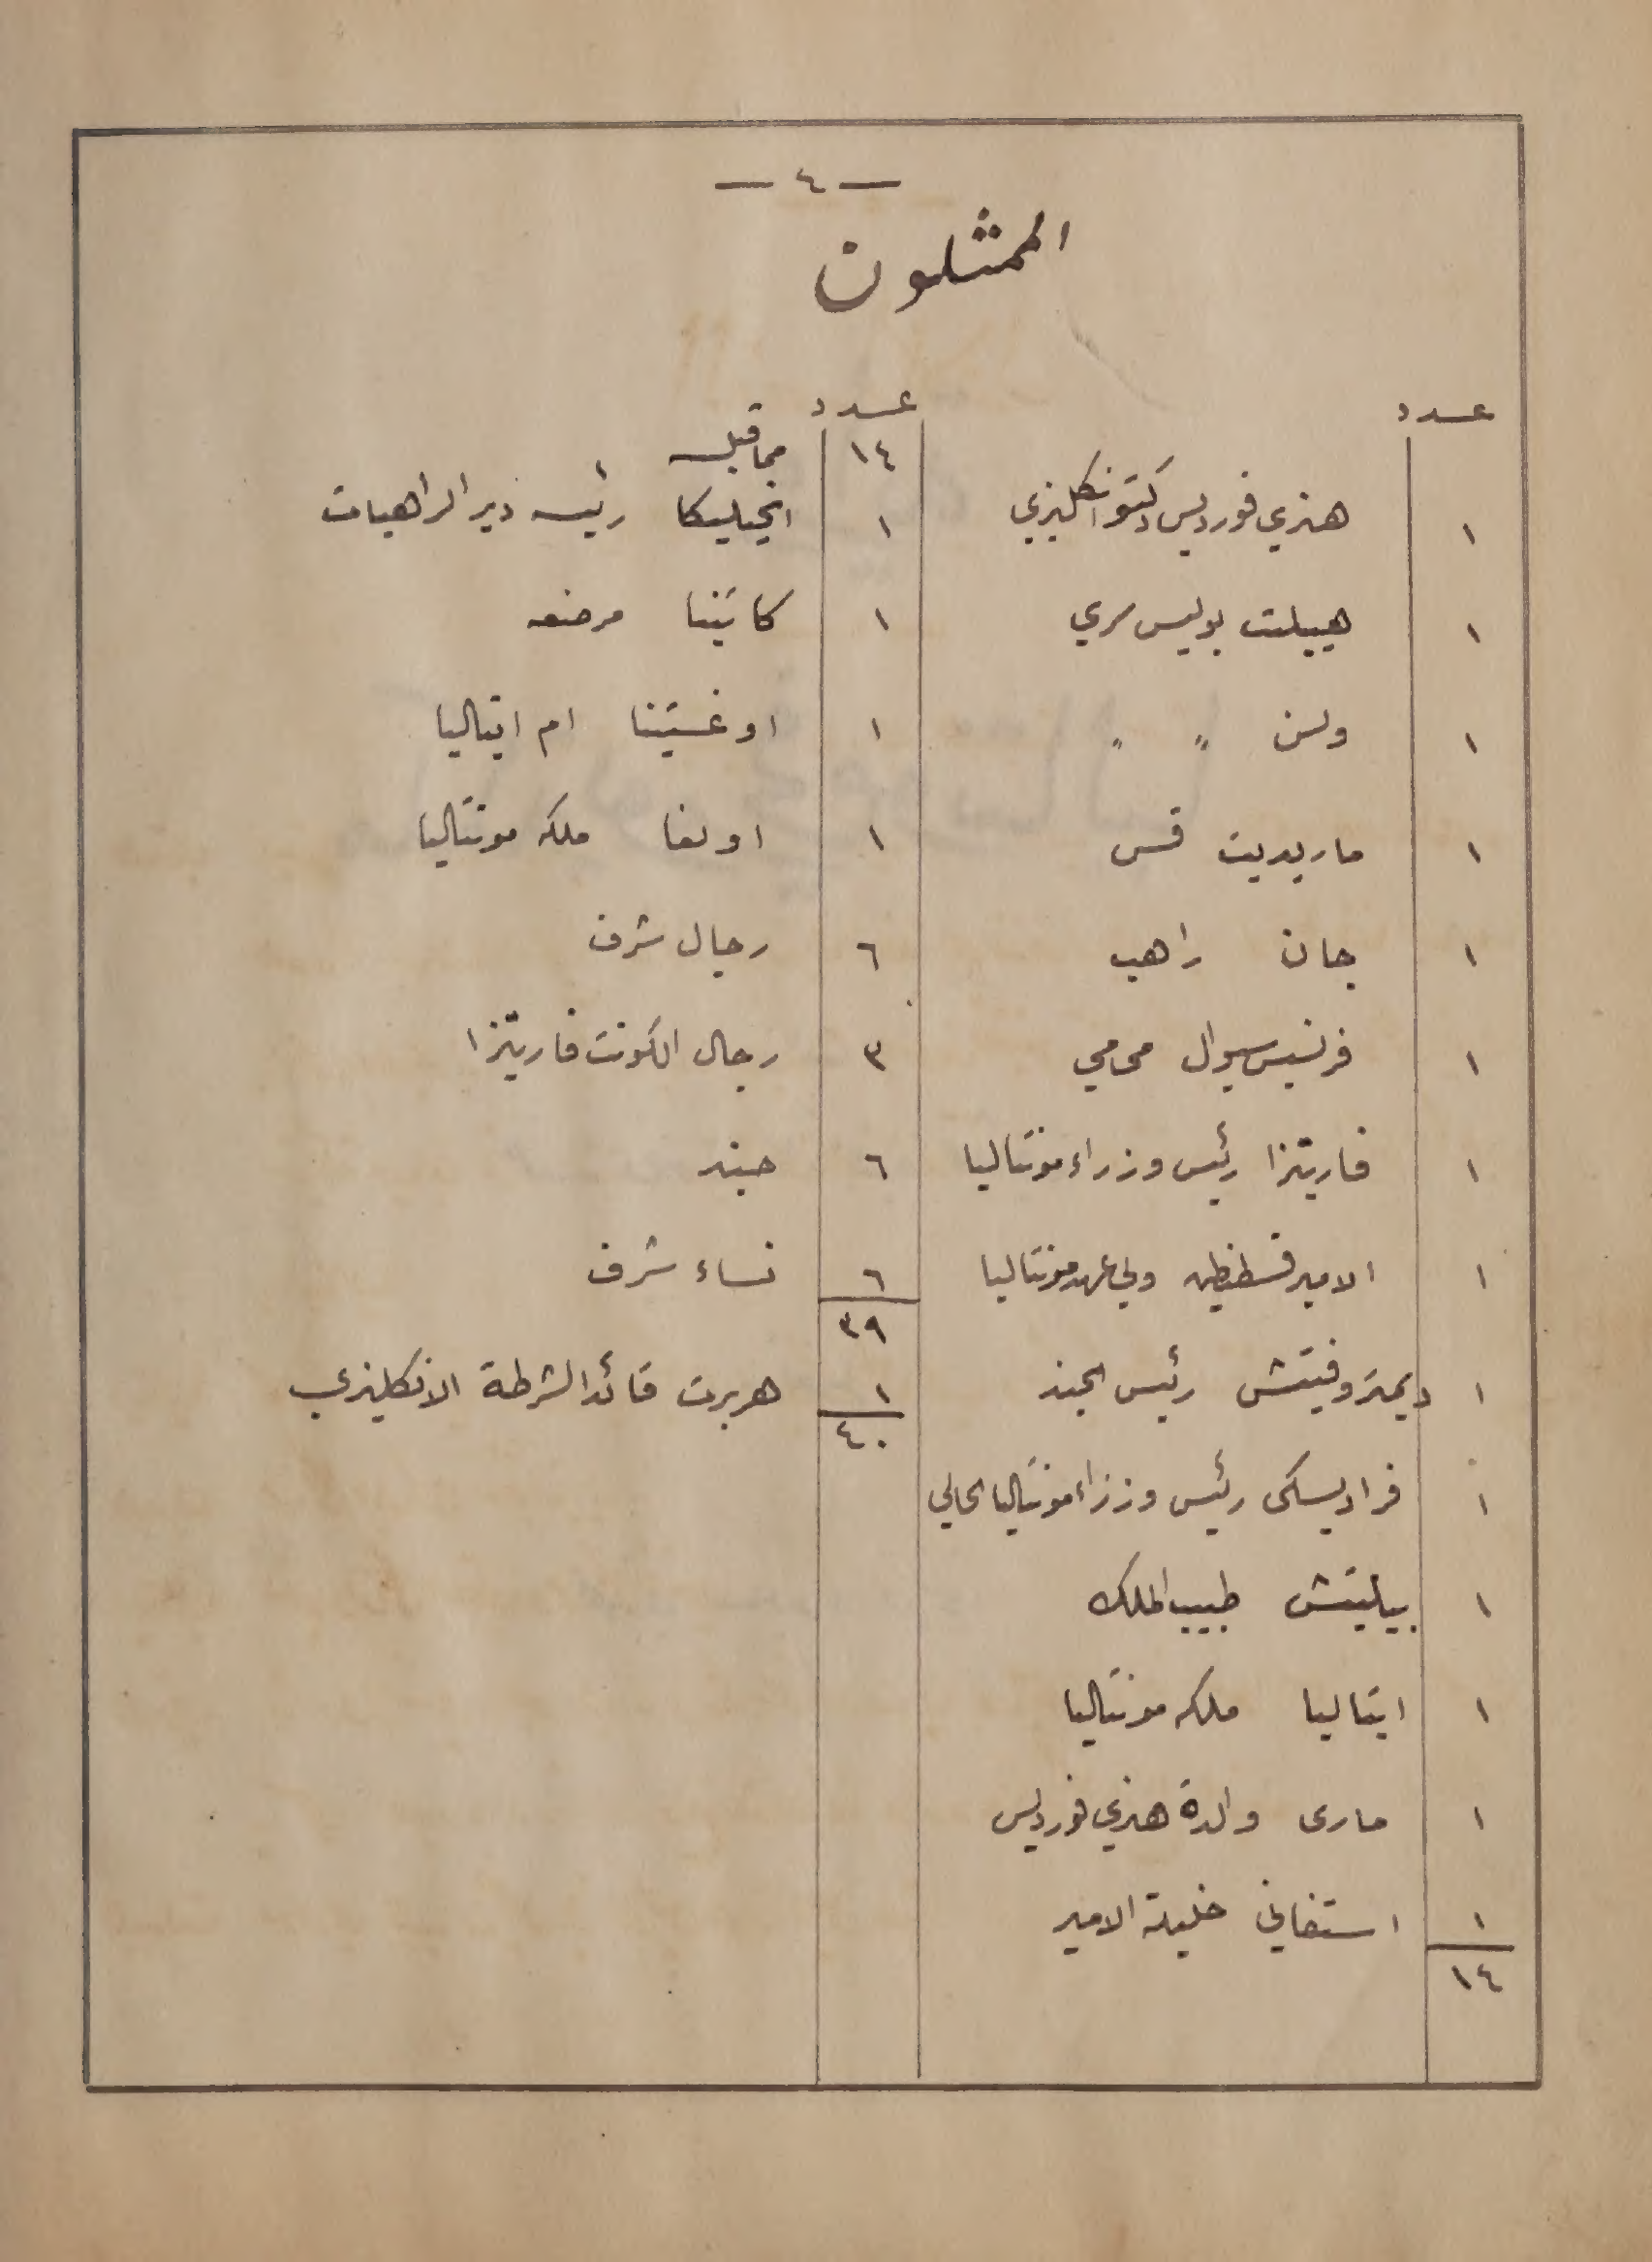 — ٤ —
الممثلون
عدد
١ هنري فورديس دكتور انكليزي
١ هيبلت بوليس سري
١ ولسن " "
١ ماريديت قس
١ جان راهب
١ فرنسيس سيوال محامي
١ فاريتزا رئيس وزراء مونتاليا
١ الامير قسطنطين ولي عهد مونتاليا
١ ديمتروفيتش رئيس الجند
١ فراديسكى رئيس وزراء مونتاليا الحالي
١ بيليتش طبيب الملك
١ ايتاليا ملكه مونتاليا
١ مارى والدة هنري فورديس
١ استفاني خليلة الامير
١٤
عدد
١٤ مما قبله
١ انجيليكا رئيسه دير الراهبات
١ كاتينا مرضعه
١ اوغستينا ام ايتاليا
١ اولغا ملكه مونتاليا
٦ رجال شرف
٣ رجال الكونت فاريتزا
٦ جند
٦ نساء شرف
٣٩
١ هربرت قائد الشرطة الانكليزي
٤٠